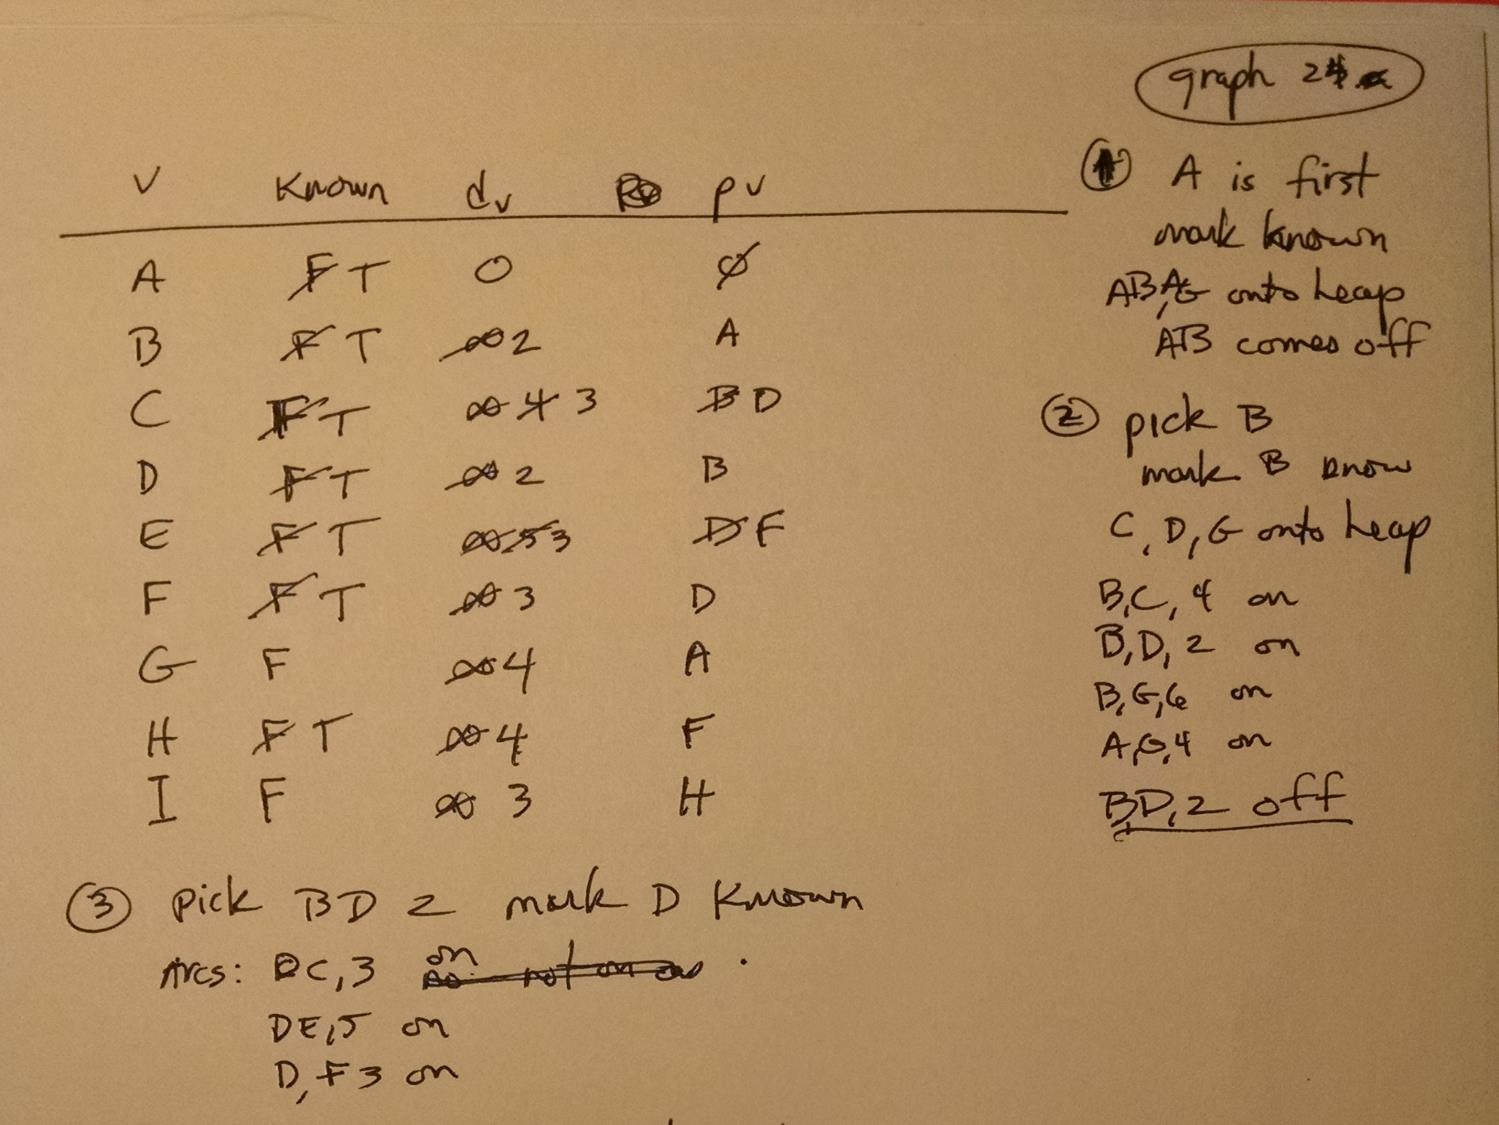 graph 2
V Known dv pv
A F T 0 ∅
B F T ∞ 2 A
C F T ∞ 4 3 B D
D F T ∞ 2 B
E F T ∞ 5 3 D F
F F T ∞ 3 D
G F ∞ 4 A
H F T ∞ 4 F
I F ∞ 3 H
① A is first
mark known
AB, AG onto heap
AB comes off
② pick B
mark B know
C, D, G onto heap
B, C, 4 on
B, D, 2 on
B, G, 6 on
A, G, 4 on
B, D, 2 off
③ pick BD 2 mark D Known
Arcs: DC, 3 on
DE, 5 on
D, F 3 on